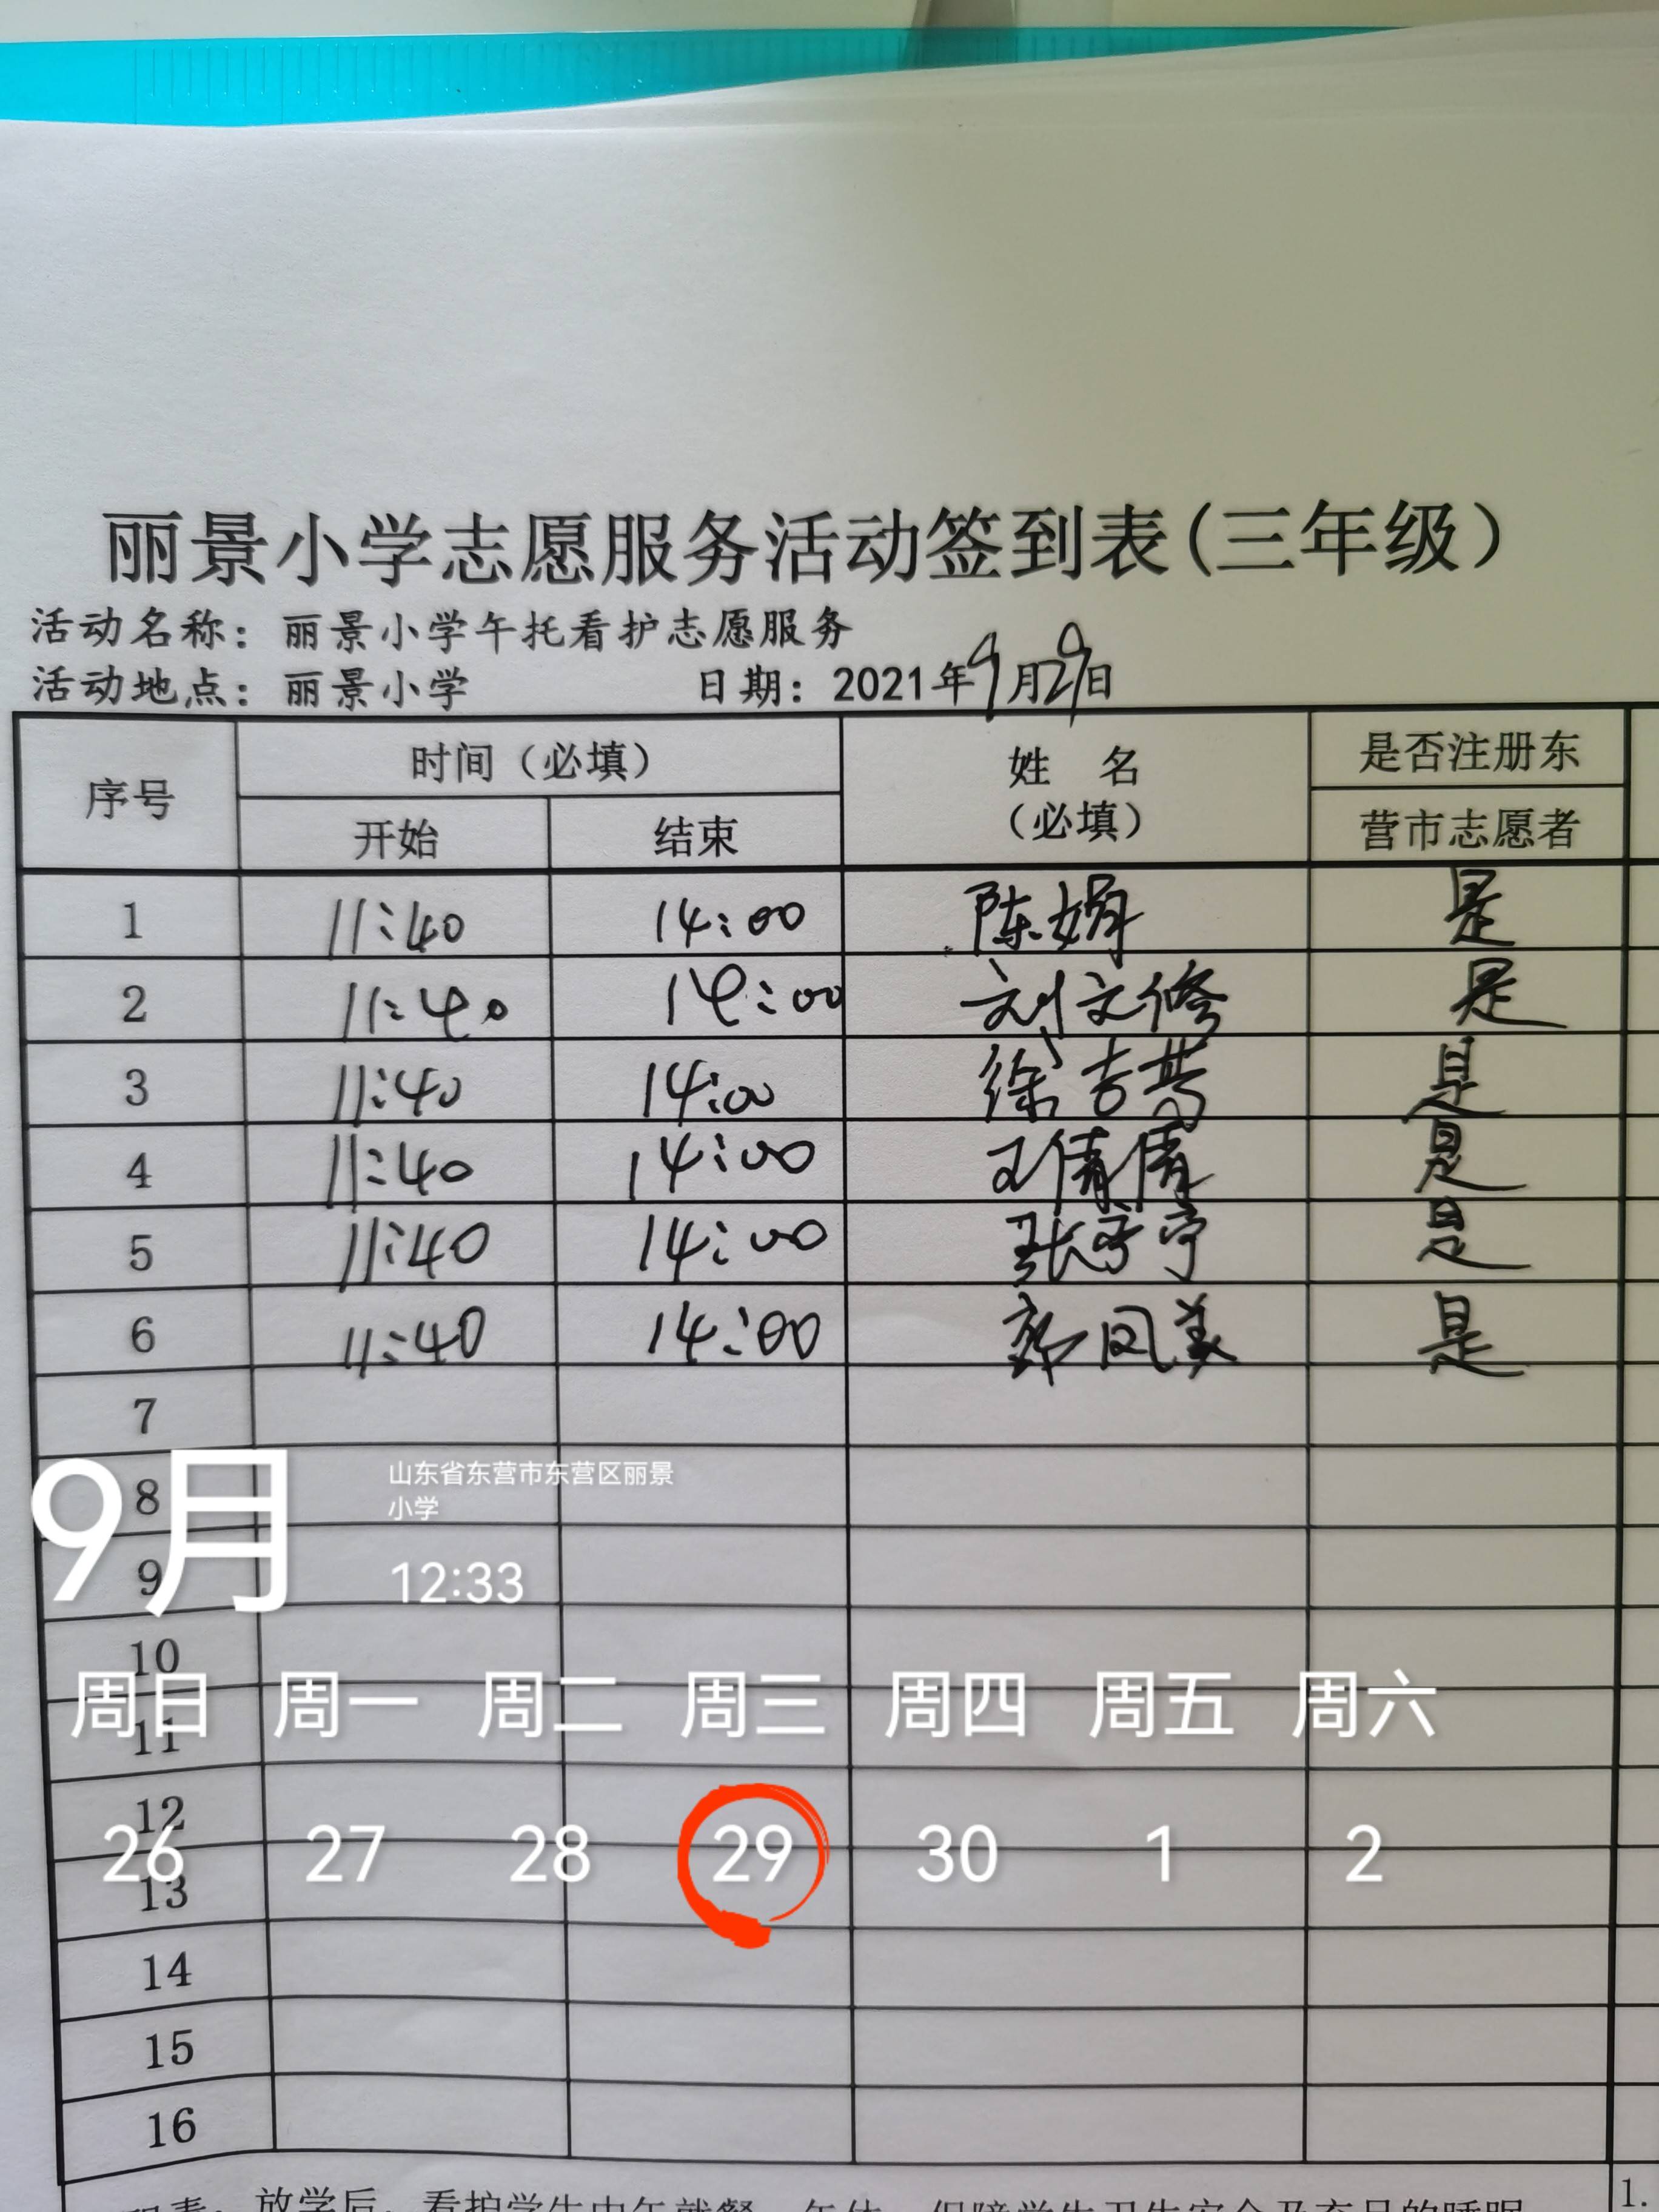 丽景小学志愿服务活动签到表(三年级)
活动名称：丽景小学午托看护志愿服务
活动地点：丽景小学 日期：2021年9月29日
序号 时间（必填） 姓 名（必填） 是否注册东
开始 结束 营市志愿者
1 11:40 14:00 陈娟 是
2 11:40 14:00 刘文修 是
3 11:40 14:00 徐吉 是
4 11:40 14:00 王倩倩 是
5 11:40 14:00 张宁 是
6 11:40 14:00 郭凤美 是
7
8
9
9月
山东省东营市东营区丽景
小学
12:33
10
周日 周一 周二 周三 周四 周五 周六
11
12
26 27 28 29 30 1 2
13
14
15
16
放学后，看护学生中午就餐 1.